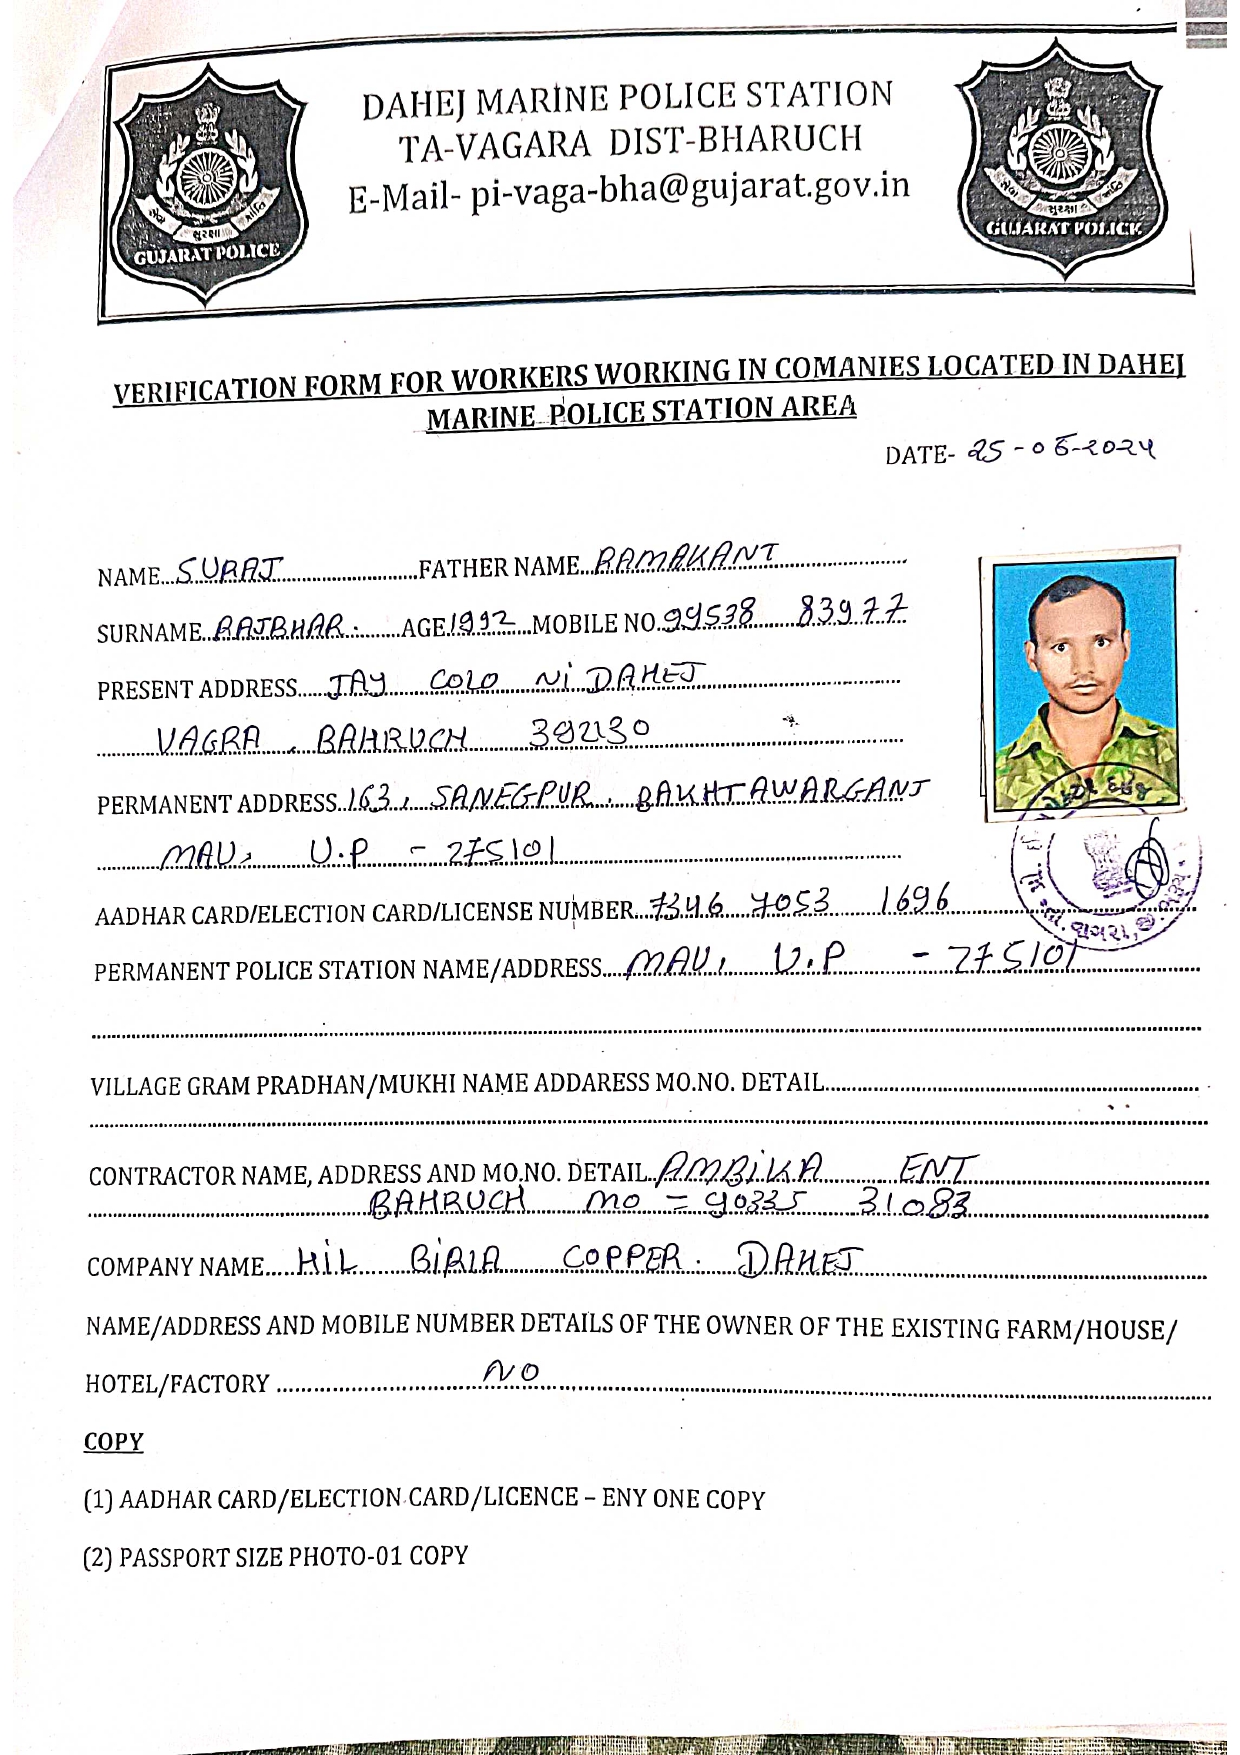 DAHEJ MARINE POLICE STATION
TA-VAGARA DIST-BHARUCH
E-Mail- pi-vaga-bha@gujarat.gov.in
સેવા સુરક્ષા શાંતિ
GUJARAT POLICE
સેવા સુરક્ષા શાંતિ
GUJARAT POLICE
VERIFICATION FORM FOR WORKERS WORKING IN COMANIES LOCATED IN DAHEJ
MARINE POLICE STATION AREA
DATE- 25-06-2024
NAME SURAJ FATHER NAME RAMAKANT
SURNAME RAJBHAR. AGE 1992 MOBILE NO. 99538 83977
PRESENT ADDRESS JAY COLO Ni DAHEJ
VAGRA, BAHRUCH 392130
PERMANENT ADDRESS 163, SANEGPUR, BAKHTAWARGANJ
MAU, U.P - 275101
AADHAR CARD/ELECTION CARD/LICENSE NUMBER 7346 7053 1696
PERMANENT POLICE STATION NAME/ADDRESS MAU, U.P - 275101
VILLAGE GRAM PRADHAN/MUKHI NAME ADDARESS MO.NO. DETAIL
CONTRACTOR NAME, ADDRESS AND MO.NO. DETAIL AMBIKA ENT
BAHRUCH MO = 90335 31083
COMPANY NAME HIL BIRLA COPPER. DAHEJ
NAME/ADDRESS AND MOBILE NUMBER DETAILS OF THE OWNER OF THE EXISTING FARM/HOUSE/
HOTEL/FACTORY NO
COPY
(1) AADHAR CARD/ELECTION CARD/LICENCE – ENY ONE COPY
(2) PASSPORT SIZE PHOTO-01 COPY